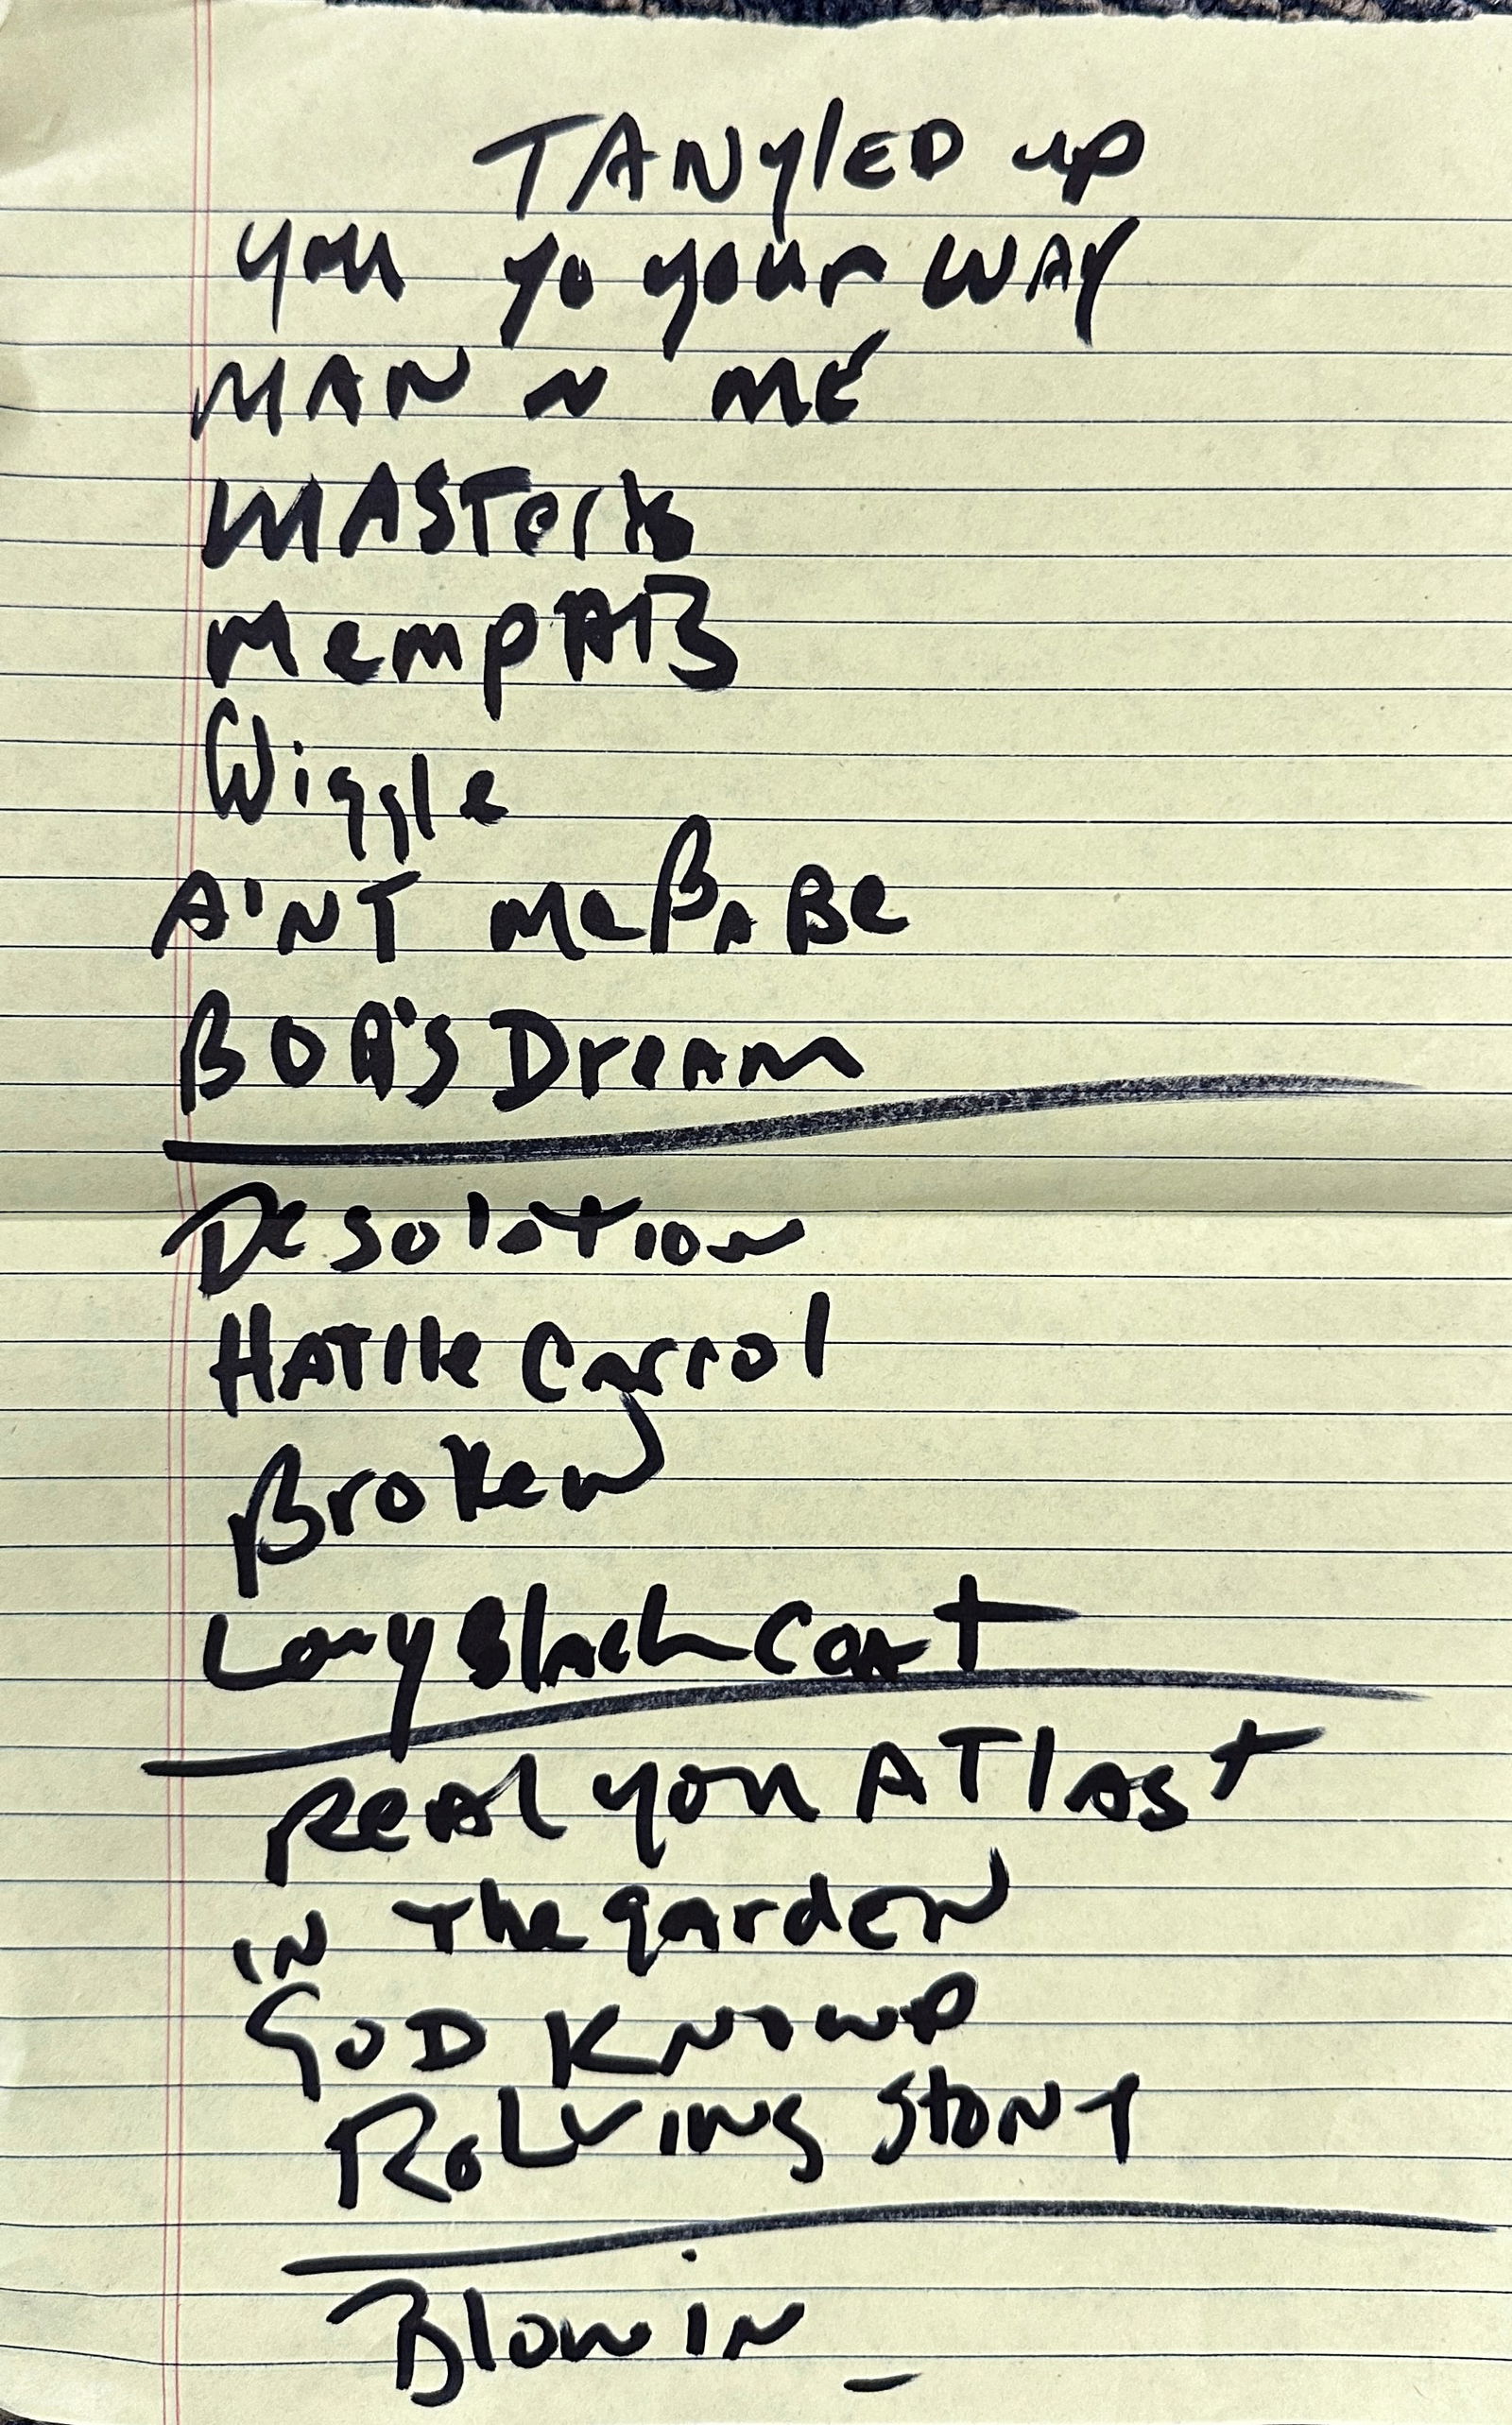 TANgled up
you go your WAY
MAN N ME
MASTers
Memphis
Wiggle
A'NT Me BaBe
BOB'S Dream
Desolation
HATTIe Carrol
Broken
Long Black Coat
Real you AT last
in The garden
GOD KNOWS
ROLLING STONE
Blowin _